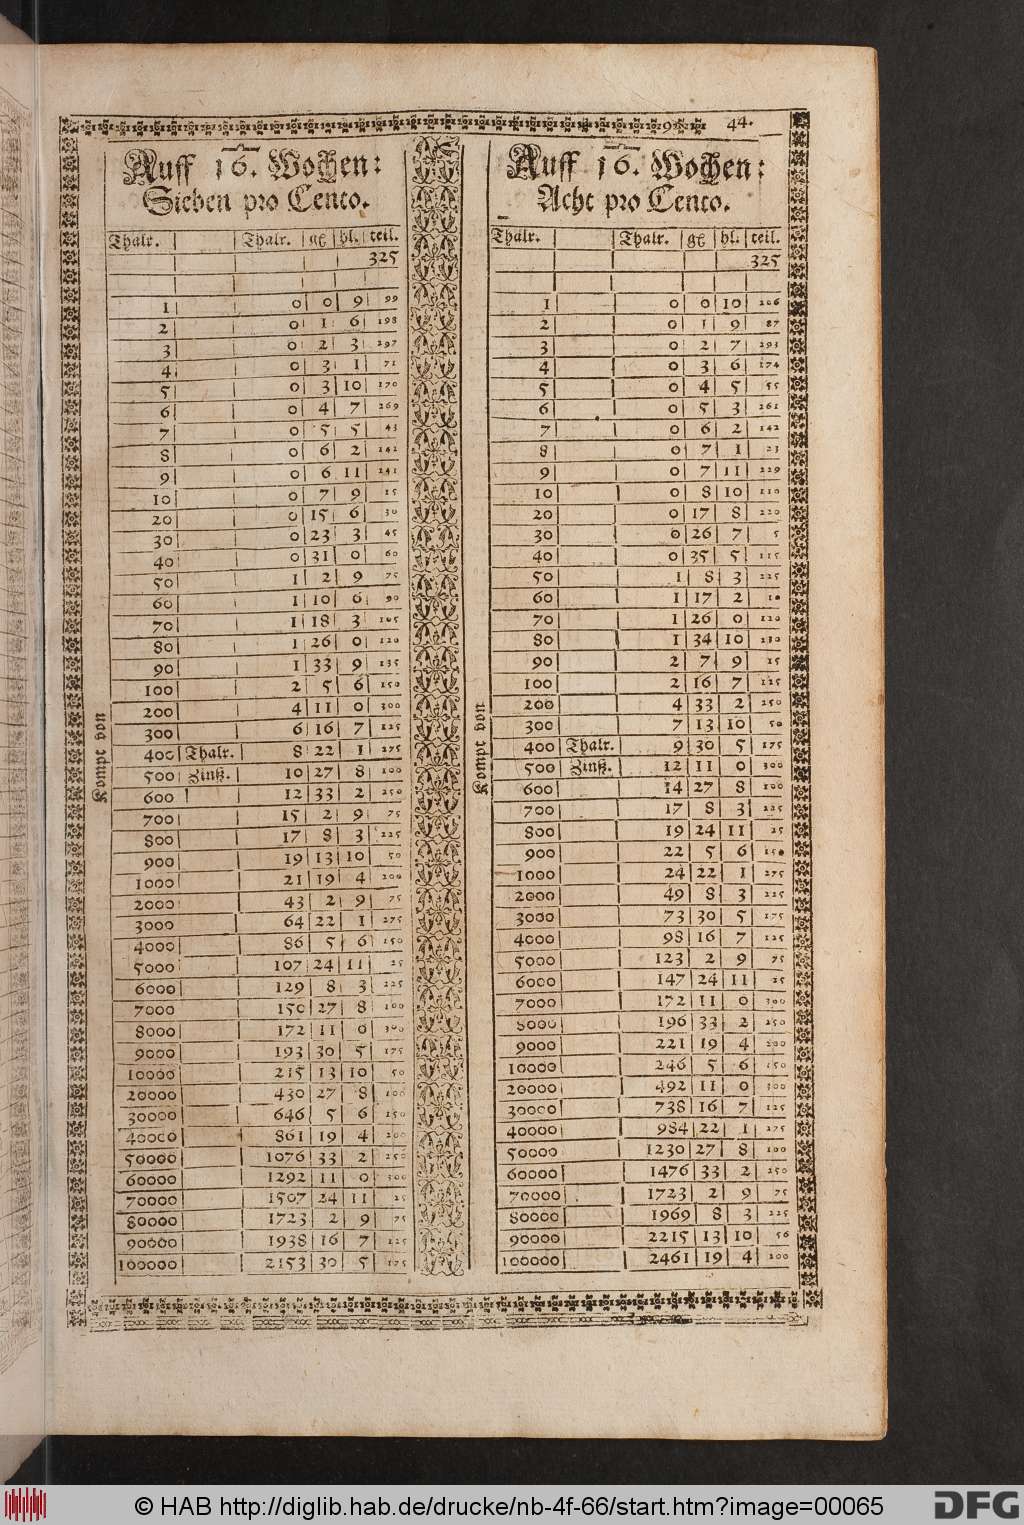 44.
Auff 16. Wochen:
Sieben pro Cento.
Thalr. Thalr. gß hl. teil.
325
1 0 0 9 99
2 0 1 6 198
3 0 2 3 297
4 0 3 1 71
5 0 3 10 170
6 0 4 7 269
7 0 5 5 43
8 0 6 2 142
9 0 6 11 241
10 0 7 9 15
20 0 15 6 30
30 0 23 3 45
40 0 31 0 60
50 1 2 9 75
60 1 10 6 90
70 1 18 3 105
80 1 26 0 120
90 1 33 9 135
100 2 5 6 150
200 4 11 0 300
300 6 16 7 125
400 Thalr. 8 22 1 275
500 Zinß. 10 27 8 100
600 12 33 2 250
700 15 2 9 75
800 17 8 3 225
900 19 13 10 50
1000 21 19 4 200
2000 43 2 9 75
3000 64 22 1 275
4000 86 5 6 150
5000 107 24 11 25
6000 129 8 3 225
7000 150 27 8 100
8000 172 11 0 300
9000 193 30 5 175
10000 215 13 10 50
20000 430 27 8 100
30000 646 5 6 150
40000 861 19 4 200
50000 1076 33 2 250
60000 1292 11 0 300
70000 1507 24 11 25
80000 1723 2 9 75
90000 1938 16 7 125
100000 2153 30 5 175
Kompt von
Auff 16. Wochen:
Acht pro Cento.
Thalr. Thalr. gß hl. teil.
325
1 0 0 10 206
2 0 1 9 87
3 0 2 7 293
4 0 3 6 174
5 0 4 5 55
6 0 5 3 261
7 0 6 2 142
8 0 7 1 23
9 0 7 11 229
10 0 8 10 110
20 0 17 8 220
30 0 26 7 5
40 0 35 5 115
50 1 8 3 225
60 1 17 2 10
70 1 26 0 120
80 1 34 10 230
90 2 7 9 15
100 2 16 7 125
200 4 33 2 250
300 7 13 10 50
400 Thalr. 9 30 5 175
500 Zinß. 12 11 0 300
600 14 27 8 100
700 17 8 3 225
800 19 24 11 25
900 22 5 6 150
1000 24 22 1 275
2000 49 8 3 225
3000 73 30 5 175
4000 98 16 7 125
5000 123 2 9 75
6000 147 24 11 25
7000 172 11 0 300
8000 196 33 2 250
9000 221 19 4 200
10000 246 5 6 150
20000 492 11 0 300
30000 738 16 7 125
40000 984 22 1 275
50000 1230 27 8 100
60000 1476 33 2 250
70000 1723 2 9 75
80000 1969 8 3 225
90000 2215 13 10 50
100000 2461 19 4 200
Kompt von
© HAB http://diglib.hab.de/drucke/nb-4f-66/start.htm?image=00065
DFG